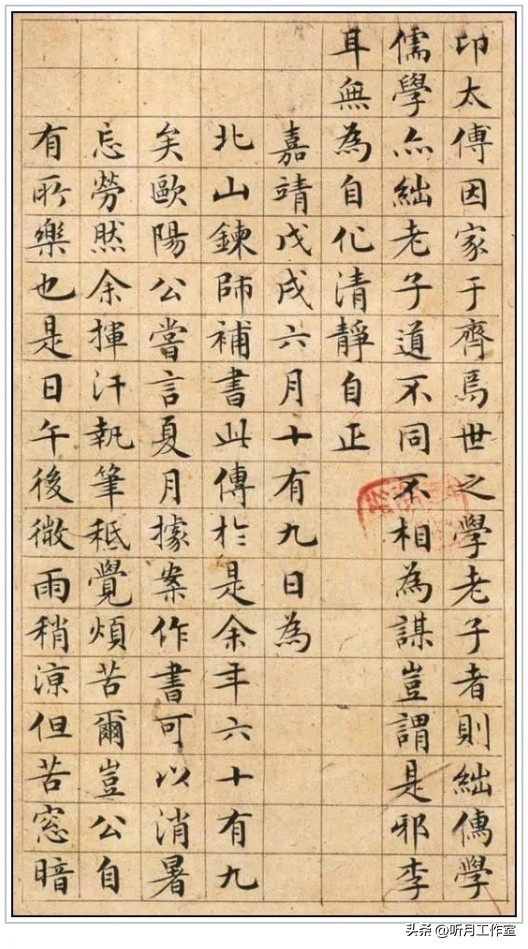 卬太傅因家于齊焉世之學老子者則絀儒學
儒學亦絀老子道不同不相為謀豈謂是邪李
耳無為自化清靜自正
嘉靖戊戌六月十有九日為
北山鍊師補書此傳於是余年六十有九
矣歐陽公嘗言夏月據案作書可以消暑
忘勞然余揮汗執筆秪覺煩苦爾豈公自
有所樂也是日午後微雨稍凉但苦窓暗
头条 @听月工作室